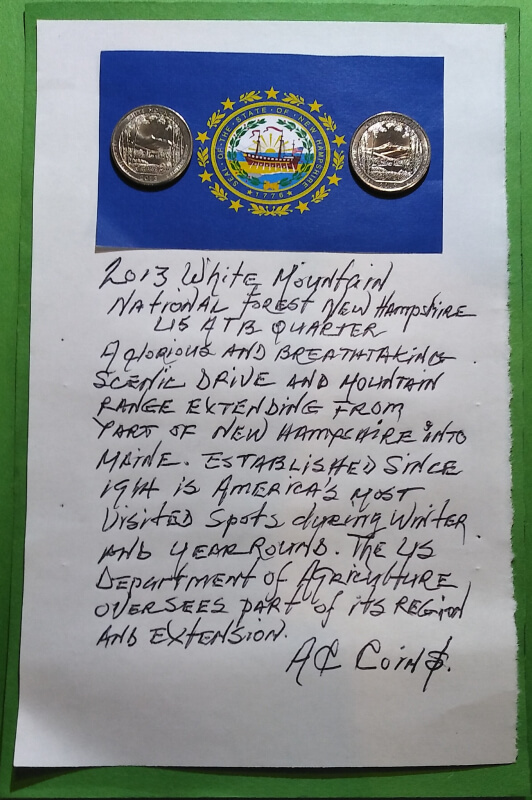 SEAL · OF · THE · STATE · OF · NEW · HAMPSHIRE
★ 1776 ★
2013 White Mountain
National Forest New Hampshire
US ATB QUARTER
A glorious AND BREATHTAKING
SCENIC DRIVE AND MOUNTAIN
RANGE EXTENDING FROM
PART OF NEW HAMPSHIRE INTO
MAINE. ESTABLISHED SINCE
1914 is America's most
Visited Spots during Winter
AND YEAR ROUND. The US
Department of Agriculture
OVERSEES PART of its REGION
AND EXTENSION.
A₵ Coin$.